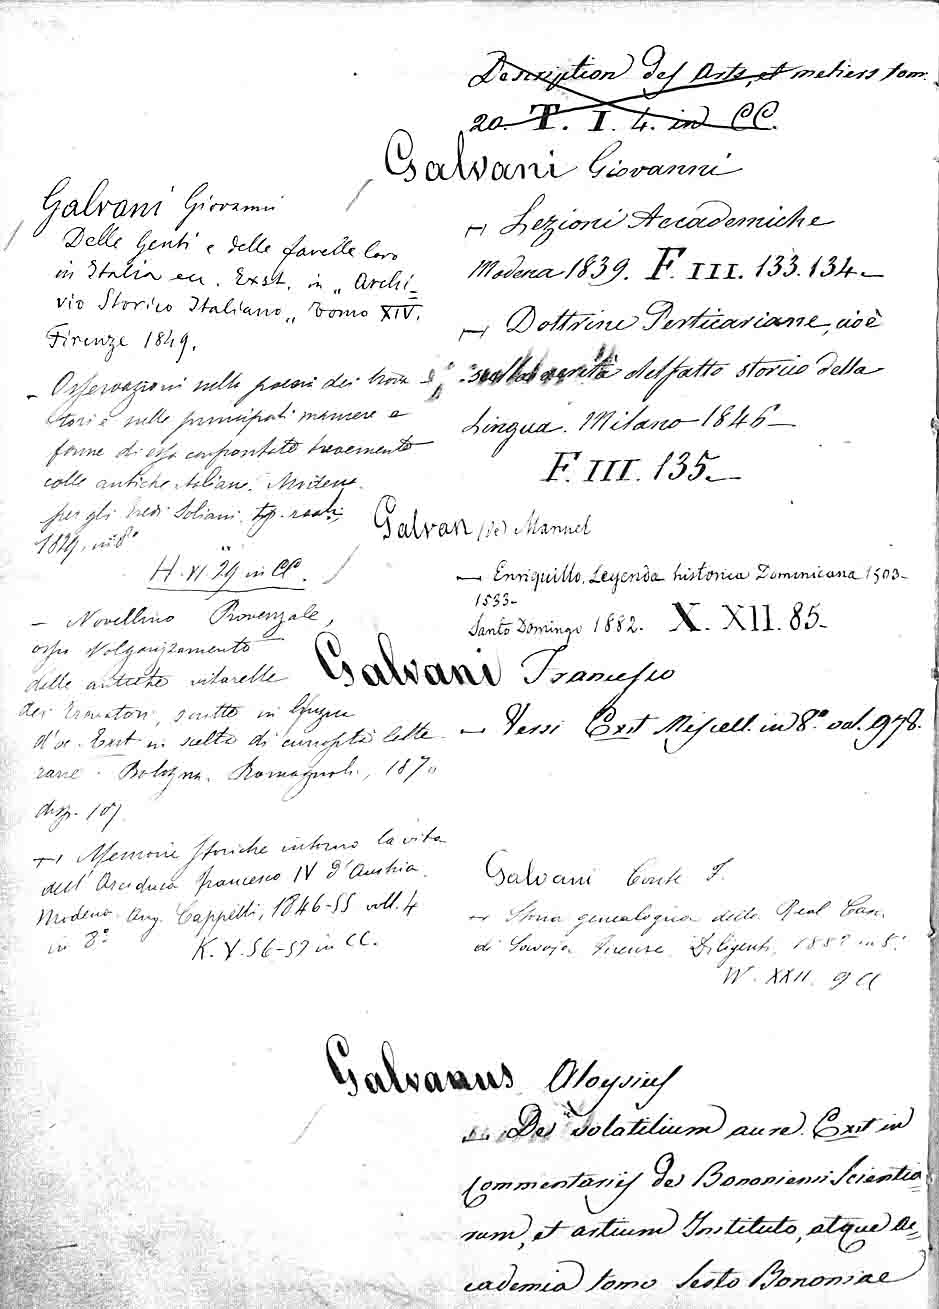 Description des Arts, et metiers tom.
20. T. I. 4. in CC.
Galvani Giovanni
Lezioni Accademiche
Modena 1839. F. III. 133. 134.
Dottrine Perticariane, cioè
sulla verità del fatto storico della
Lingua. Milano 1846
F. III. 135.
Galvan (de) Manuel
Enriquillo. Leyenda historica Dominicana 1503-
1533-
Santo Domingo 1882. X. XII. 85.
Galvani Francesco
Versi Exst Miscell. in 8.° vol. 978.
Galvani Conte F.
Storia genealogica della Real Casa
di Savoja Firenze Diligenti, 188 in 8.°
W. XXII. 9
Galvanus Aloysius
De volatilium aure. Exst in
Commentariis de Bononiensi Scientia-
rum, et artium Instituto, atque Ac=
cademia tomo Sexto Bononiae
Galvani Giovanni
Delle Genti e delle favelle loro
in Italia ecc. Exst. in „Archi=
vio Storico Italiano„ Tomo XIV.
Firenze 1849.
Osservazioni sulla poesia dei trova
tori e sulle principali maniere e
forme di essa confrontate brevemente
colle antiche italiane. Modena.
per gli Eredi Soliani. tip. reali,
1829. in 8°
H. VI. 29 in CC.
Novellino Provenzale,
ossia Volgarizzamento
delle antiche vitarelle
dei Trovatori, scritte in lingua
d'oc. Exst in scelta di curiosità lette
rarie. Bologna. Romagnoli, 1870
disp. 107.
Memorie storiche intorno la vita
dell'Arciduca Francesco IV d'Austria.
Modena. Ang. Cappelli, 1846-55 voll. 4
in 8.°
K. V. 56-57 in CC.